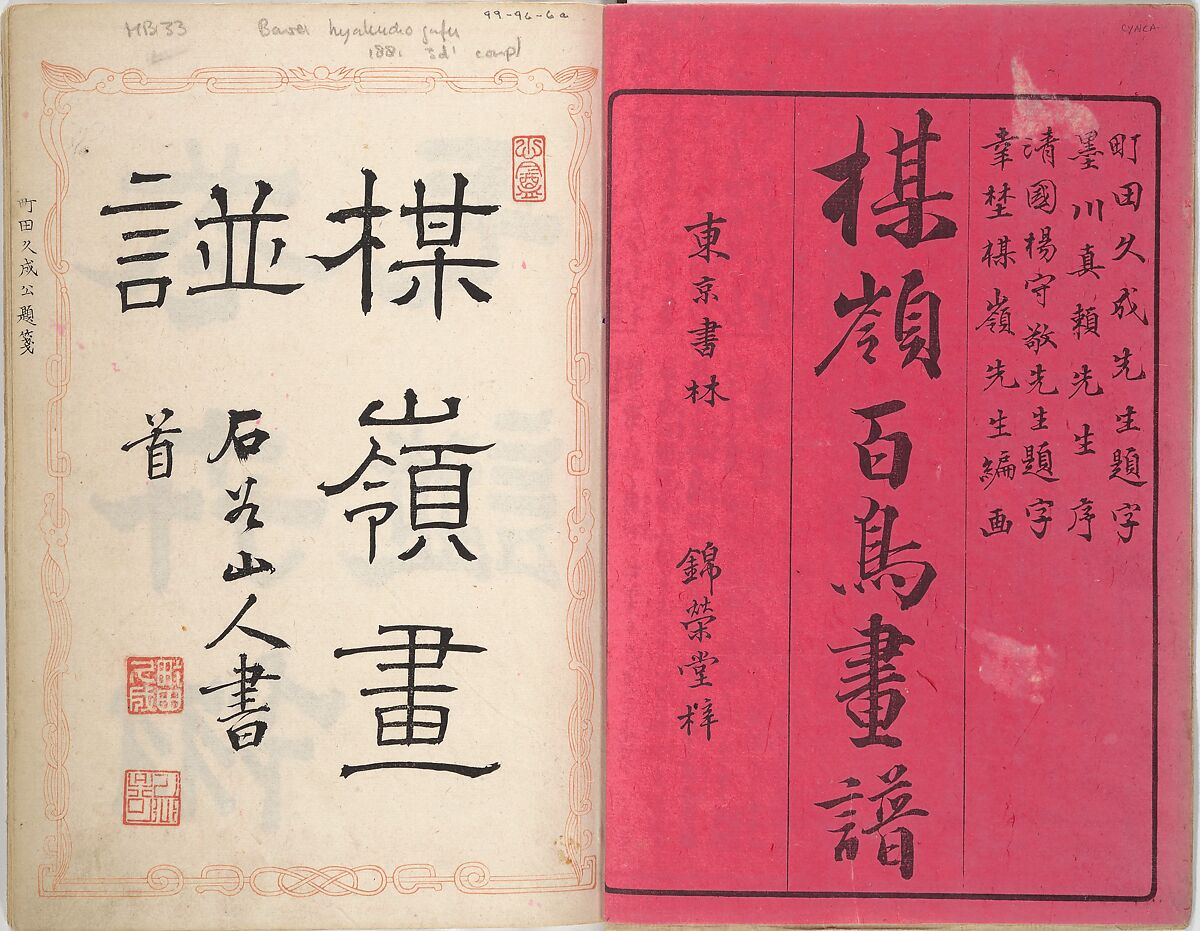 町田久成先生題字
墨川真頼先生序
清國楊守敬先生題字
幸埜楳嶺先生編画
楳嶺百鳥畫譜
東京書林 錦榮堂梓
楳嶺畫
諩
石谷山人書
首
町田久成公題箋
99-96-6a
1881